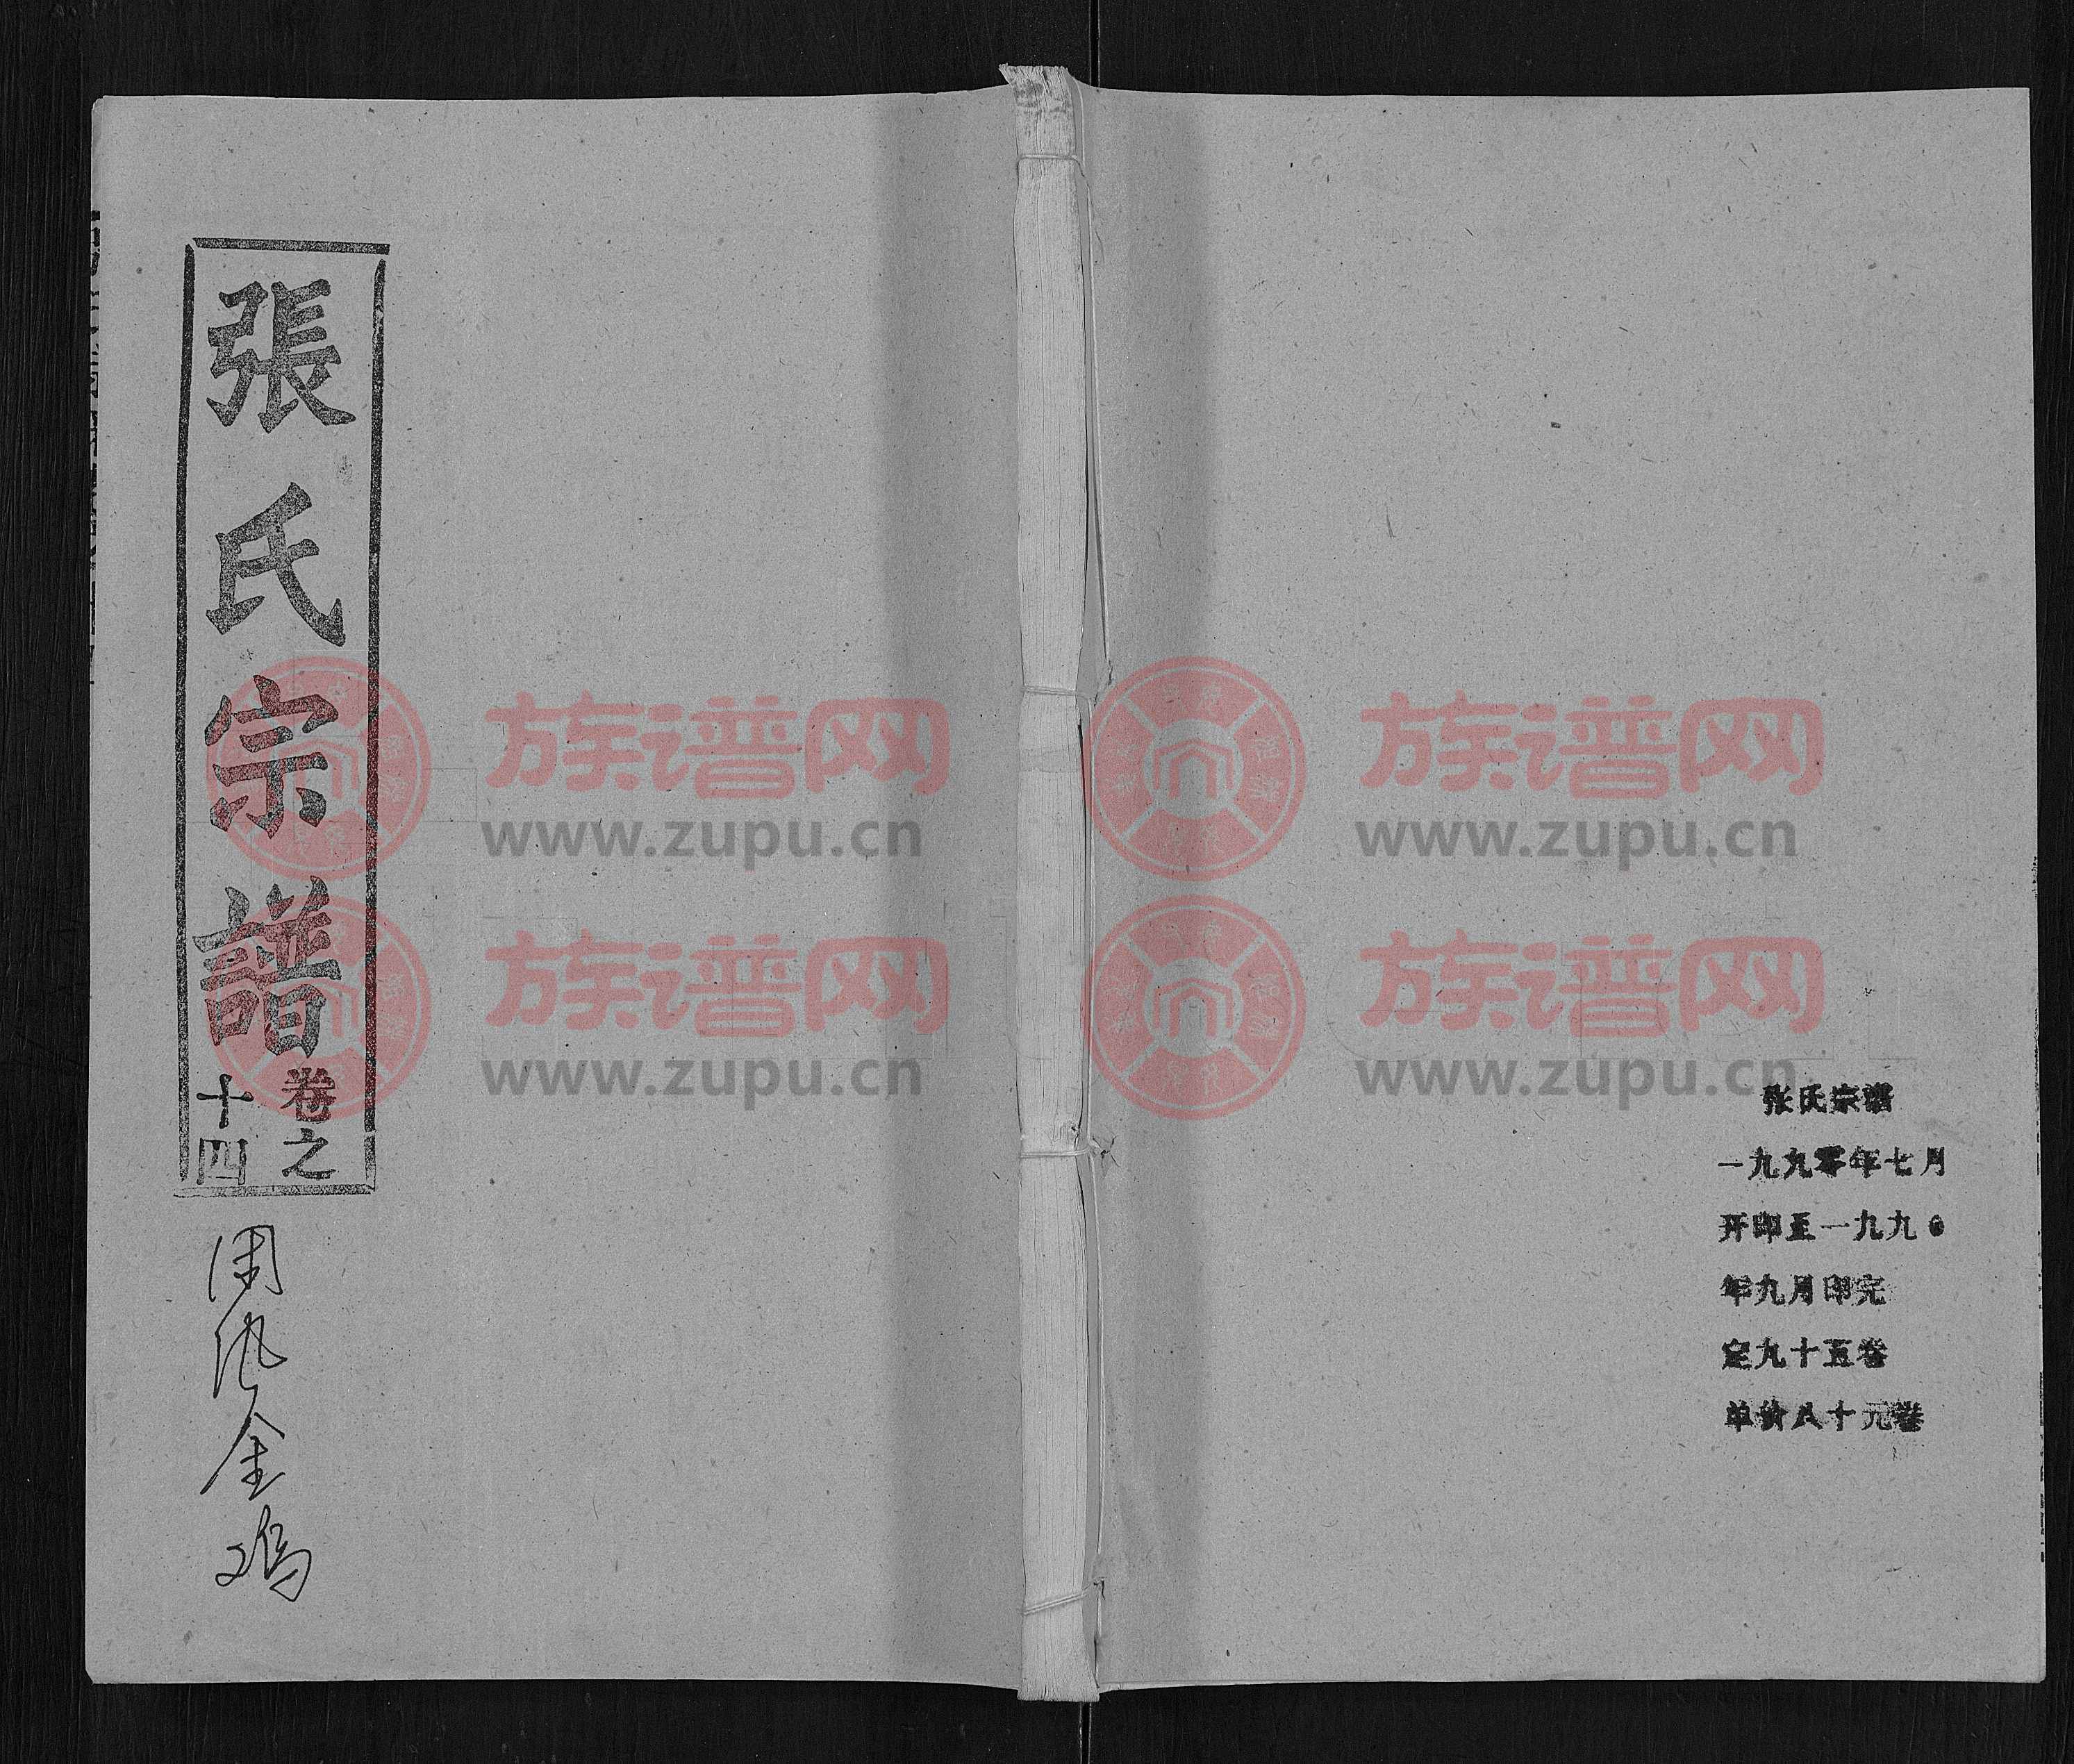 張氏宗譜
卷之
十四
金鸡
张氏宗谱
一九九零年七月
开印至一九九0
年九月印完
定九十五卷
单价八十元卷
族谱网
www.zupu.cn
族谱网
www.zupu.cn
族谱网
www.zupu.cn
族谱网
www.zupu.cn